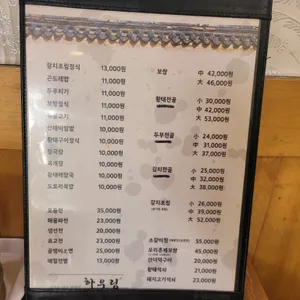 갈치조림정식 13,000원
곤드레밥 11,000원
두루치기 11,000원
보쌈정식 11,000원
불고기 11,000원
산채비빔밥 10,000원
황태구이정식 10,000원
청국장 10,000원
육개장 10,000원
황태해장국 10,000원
도토리묵밥 10,000원
모듬전 35,000원
해물파전 23,000원
생선전 20,000원
표고전 23,000원
골뱅이소면 25,000원
메밀전병 13,000원
보쌈 中 42,000원
大 46,000원
황태전골 小 30,000원
中 42,000원
大 53,000원
두부전골 小 24,000원
中 31,000원
大 37,000원
김치전골 小 25,000원
中 32,000원
大 38,000원
갈치조림 小 26,000원
中 39,000원
大 52,000원
소갈비찜 55,000원
오리훈제보쌈 45,000원
산더덕구이 20,000원
황태찜 21,000원
돼지고기석쇠 23,000원
하우림